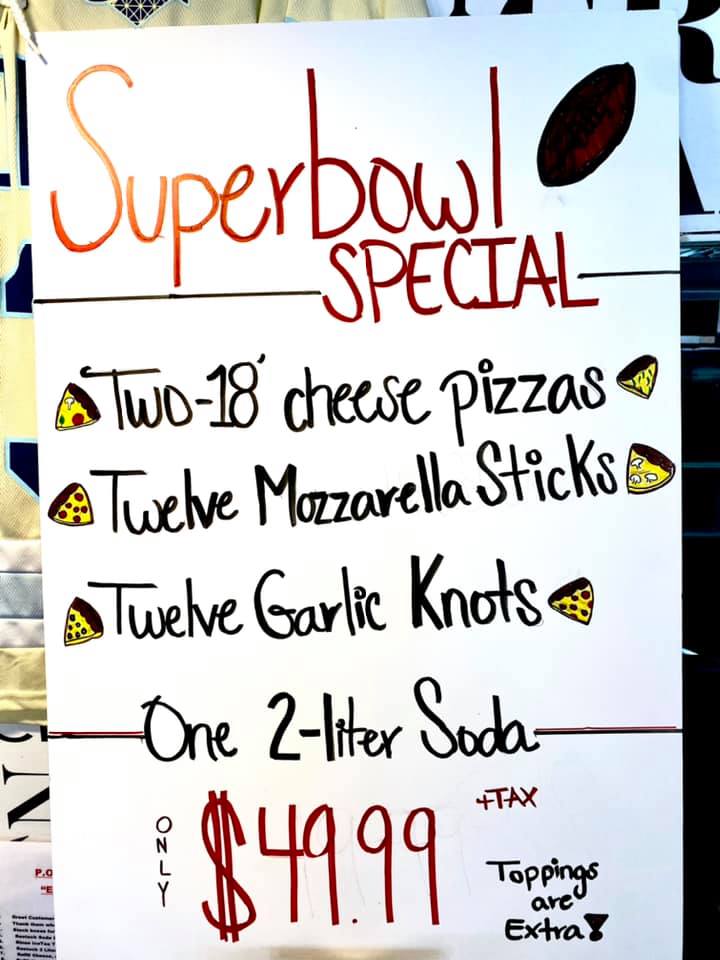 Superbowl
SPECIAL
Two-18' cheese pizzas
Twelve Mozzarella Sticks
Twelve Garlic Knots
One 2-liter Soda
ONLY
$49.99
+TAX
Toppings
are
Extra!
P.O
"E